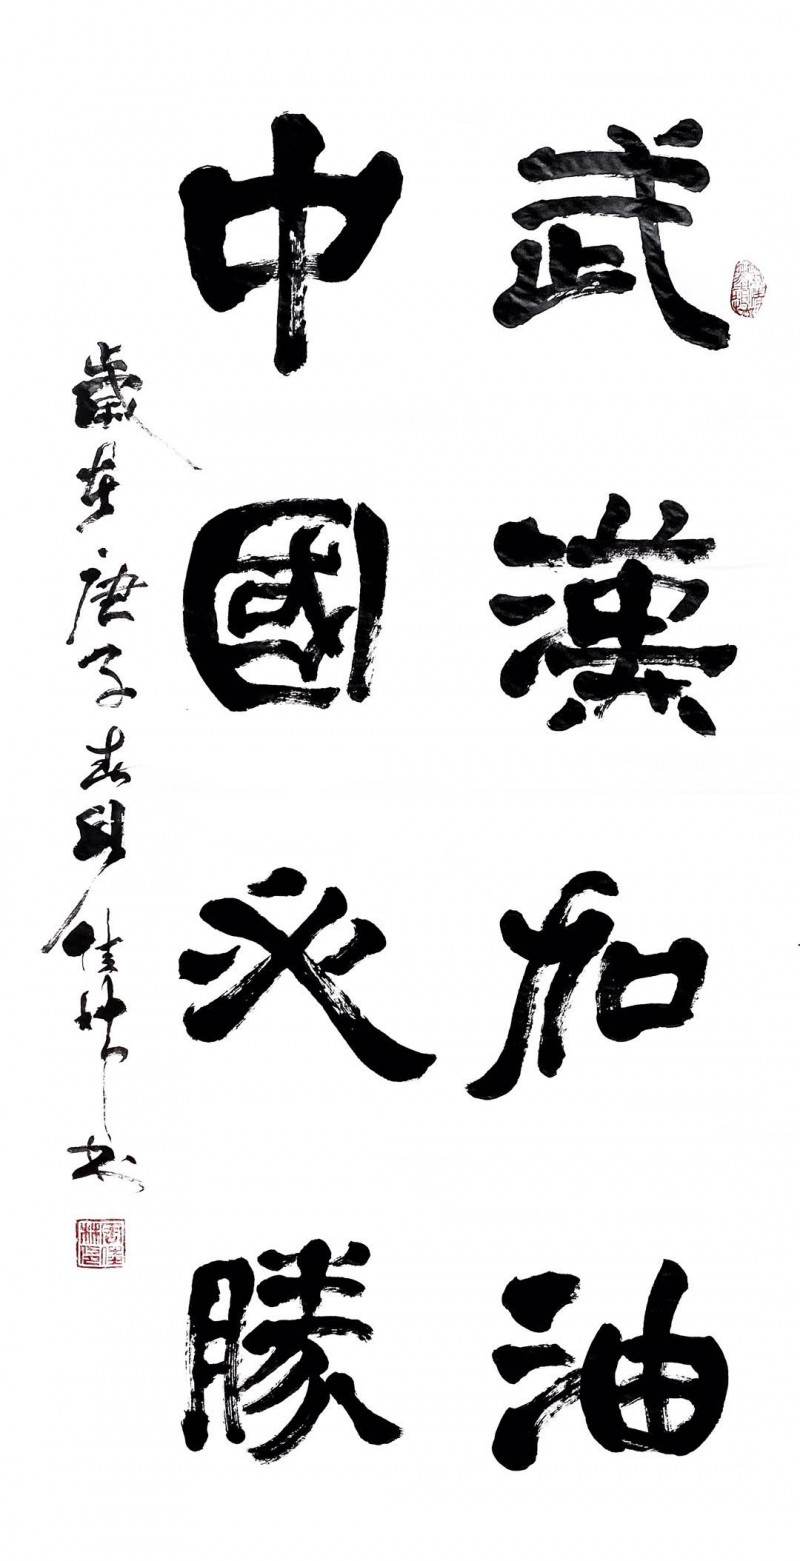 武漢加油
中國必勝
歲在庚子春月佳林書